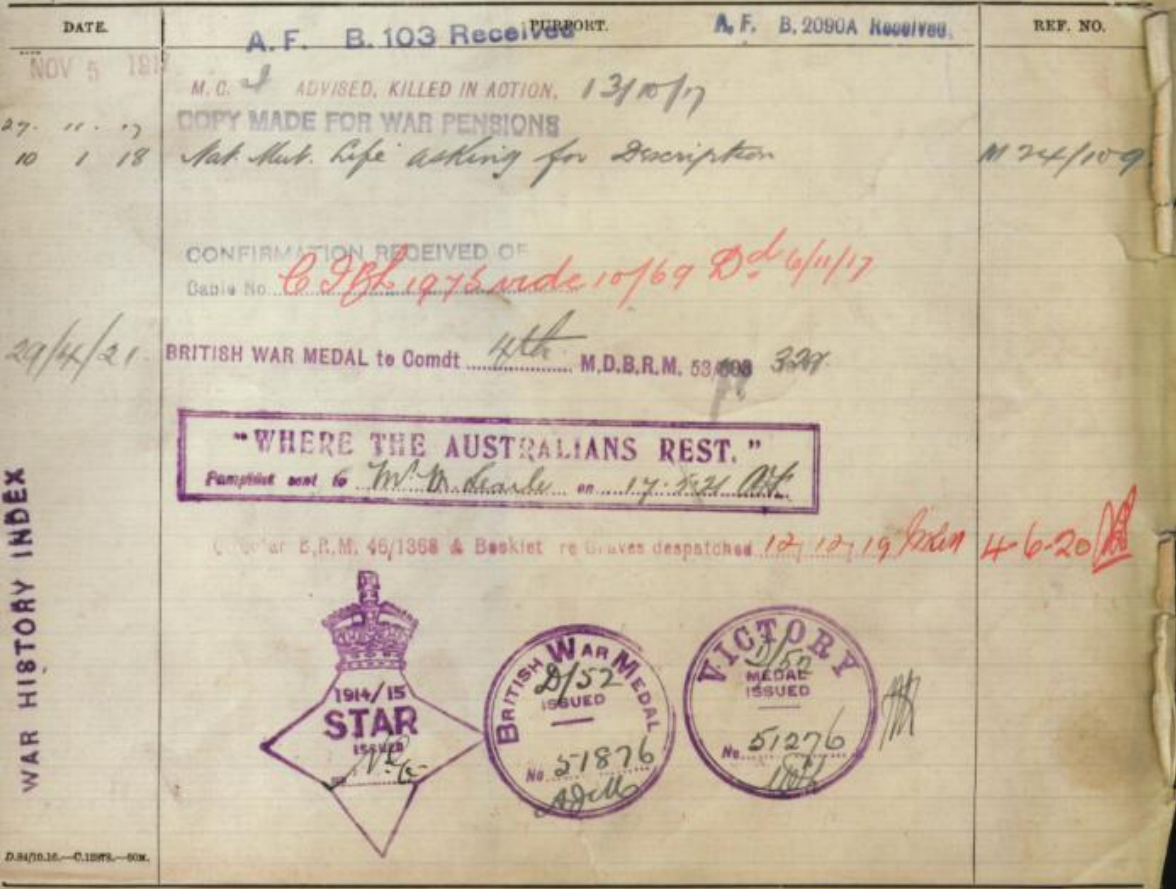 DATE. PURPORT. REF. NO.
A. F. B. 103 Received A. F. B. 2090A Received.
NOV 5 1917
M. C. I ADVISED, KILLED IN ACTION, 13/10/17
27. 11. 17 COPY MADE FOR WAR PENSIONS
10 1 18 Nat. Mut. Life asking for Description M 24/109
CONFIRMATION RECEIVED OF
Cable No. 1975 vide 10/69 Dd 6/11/17
29/4/21 BRITISH WAR MEDAL to Comdt 4th M.D.B.R.M. 53
"WHERE THE AUSTRALIANS REST."
Pamphlet sent to Mr M. Searle on 17.5.21
Circular B.R.M. 46/1368 & Booklet re Graves despatched 12/12/19 4-6-20
WAR HISTORY INDEX
1914/15
STAR
ISSUED
BRITISH WAR MEDAL
D/52
ISSUED
No 51876
VICTORY
D/52
MEDAL
ISSUED
No. 51276